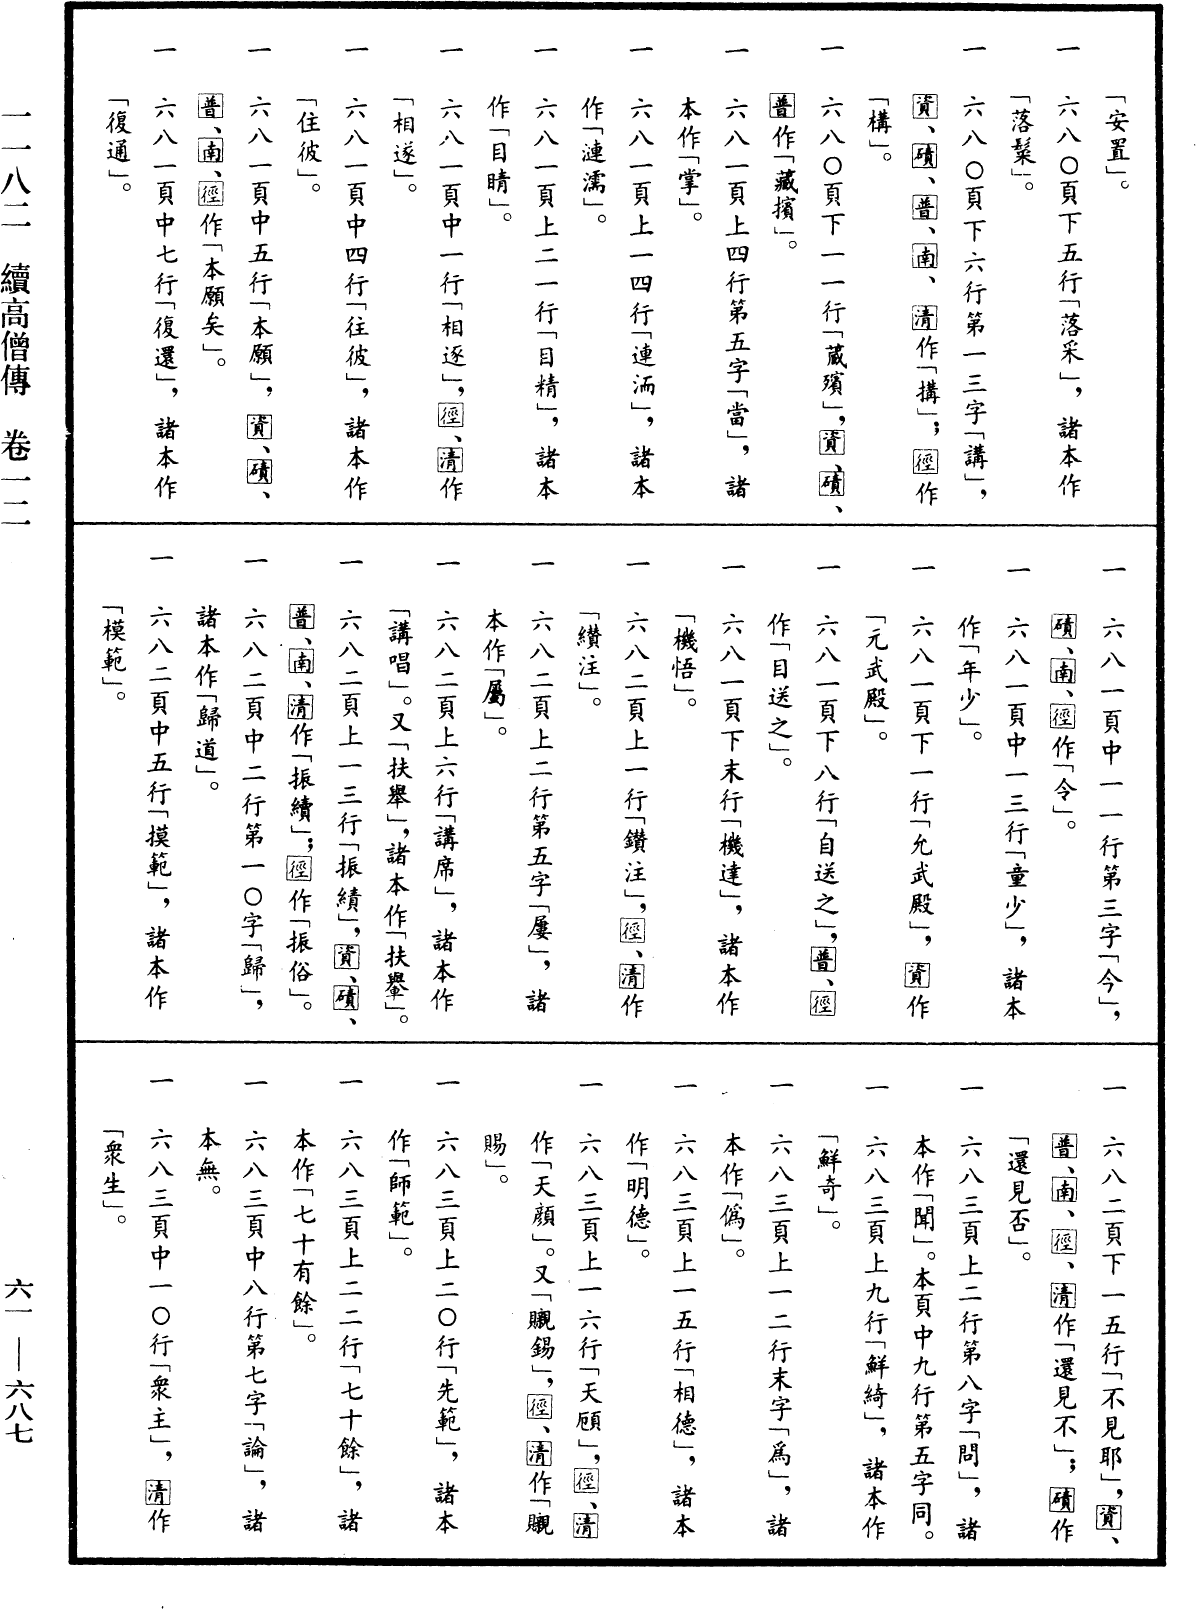 「安置」。
一　六八〇頁下五行「落采」，諸本作
「落髮」。
一　六八〇頁下六行第一三字「講」，
資、磧、普、南、清作「搆」；徑作
「構」。
一　六八〇頁下一一行「藏殯」，資、磧、
普作「藏擯」。
一　六八一頁上四行第五字「當」，諸
本作「掌」。
一　六八一頁上一四行「連洏」，諸本
作「漣濡」。
一　六八一頁上二一行「目精」，諸本
作「目睛」。
一　六八一頁中一行「相逐」，徑、清作
「相遂」。
一　六八一頁中四行「往彼」，諸本作
「住彼」。
一　六八一頁中五行「本願」，資、磧、
普、南、徑作「本願矣」。
一　六八一頁中七行「復還」，諸本作
「復通」。
一　六八一頁中一一行第三字「今」，
磧、南、徑作「令」。
一　六八一頁中一三行「童少」，諸本
作「年少」。
一　六八一頁下一行「允武殿」，資作
「元武殿」。
一　六八一頁下八行「自送之」，普、徑
作「目送之」。
一　六八一頁下末行「機達」，諸本作
「機悟」。
一　六八二頁上一行「鑽注」，徑、清作
「纘注」。
一　六八二頁上二行第五字「屢」，諸
本作「屬」。
一　六八二頁上六行「講席」，諸本作
「講唱」。又「扶舉」，諸本作「扶轝」。
一　六八二頁上一三行「振績」，資、磧、
普、南、清作「振續」；徑作「振俗」。
一　六八二頁中二行第一〇字「歸」，
諸本作「歸道」。
一　六八二頁中五行「摸範」，諸本作
「模範」。
一　六八二頁下一五行「不見耶」，資、
普、南、徑、清作「還見不」；磧作
「還見否」。
一　六八三頁上二行第八字「問」，諸
本作「聞」。本頁中九行第五字同。
一　六八三頁上九行「鮮綺」，諸本作
「鮮奇」。
一　六八三頁上一二行末字「爲」，諸
本作「僞」。
一　六八三頁上一五行「相德」，諸本
作「明德」。
一　六八三頁上一六行「天頋」，徑、清
作「天顔」。又「䞋錫」，徑、清作「䞋
賜」。
一　六八三頁上二〇行「先範」，諸本
作「師範」。
一　六八三頁上二二行「七十餘」，諸
本作「七十有餘」。
一　六八三頁中八行第七字「論」，諸
本無。
一　六八三頁中一〇行「衆主」，清作
「衆生」。
一一八二　續高僧傳　卷一二
六一——六八七